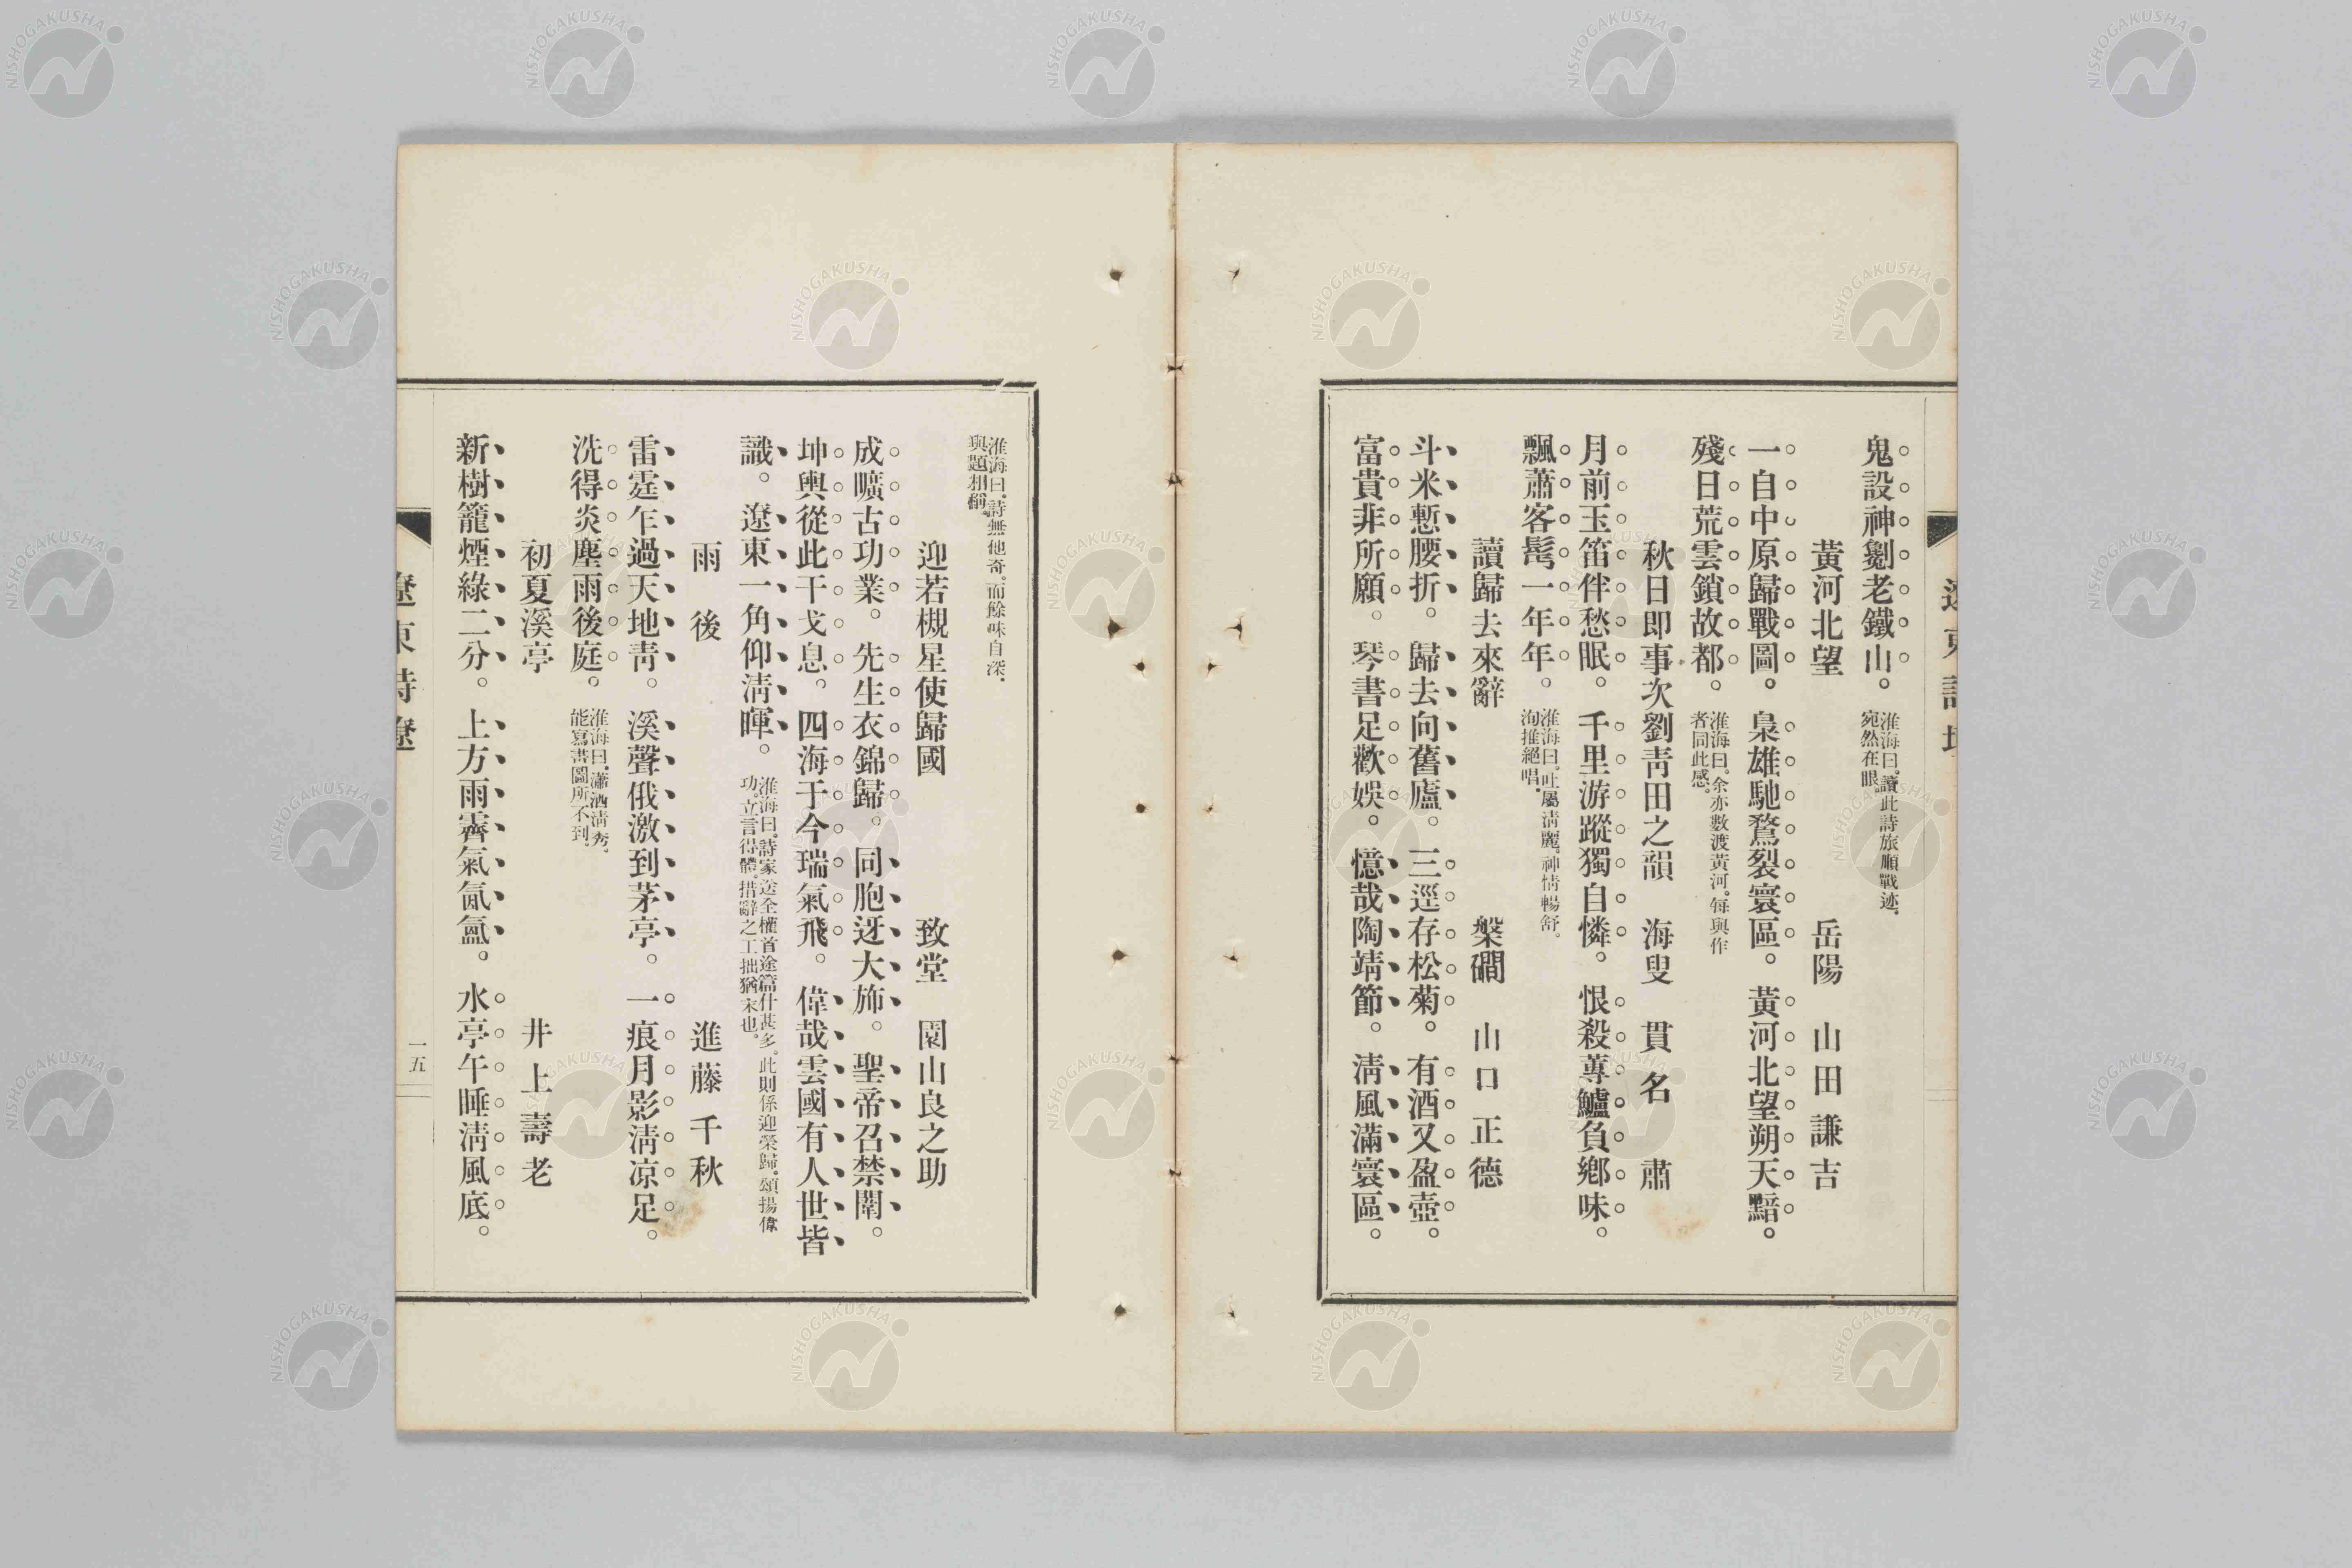 鬼設神劖老鐵山。
淮海曰。讀此詩旅順戰迹。
宛然在眼。
黃河北望 岳陽 山田謙吉
一自中原歸戰圖。梟雄馳騖裂寰區。黃河北望朔天黯。
殘日荒雲鎖故都。
淮海曰。余亦數渡黃河。每與作
者同此感。
秋日即事次劉靑田之韻 海叟 貫名肅
月前玉笛伴愁眠。千里游蹤獨自憐。恨殺蓴鱸負鄕味。
飄蕭客髩一年年。
淮海曰。吐屬淸麗。神情暢舒。
洵推絕唱。
讀歸去來辭 槃磵 山口正德
斗米慙腰折。歸去向舊廬。三逕存松菊。有酒又盈壺。
富貴非所願。琴書足歡娛。憶哉陶靖節。淸風滿寰區。
淮海曰。詩無他奇。而餘味自深。
與題相稱。
迎若槻星使歸國 致堂 園山良之助
成曠古功業。先生衣錦歸。同胞迓大斾。聖帝召禁闈。
坤輿從此干戈息。四海于今瑞氣飛。偉哉雲國有人世皆
識。遼東一角仰淸暉。
淮海曰。詩家送全權首途篇什甚多。此則係迎榮歸。頌揚偉
功。立言得體。措辭之工拙猶末也。
雨後 進藤千秋
雷霆乍過天地靑。溪聲俄激到茅亭。一痕月影淸凉足。
洗得炎塵雨後庭。
淮海曰。瀟洒淸秀。
能寫書圖所不到。
初夏溪亭 井上壽老
新樹籠煙綠二分。上方雨霽氣氤氳。水亭午睡淸風底。
遼東詩壇
一五